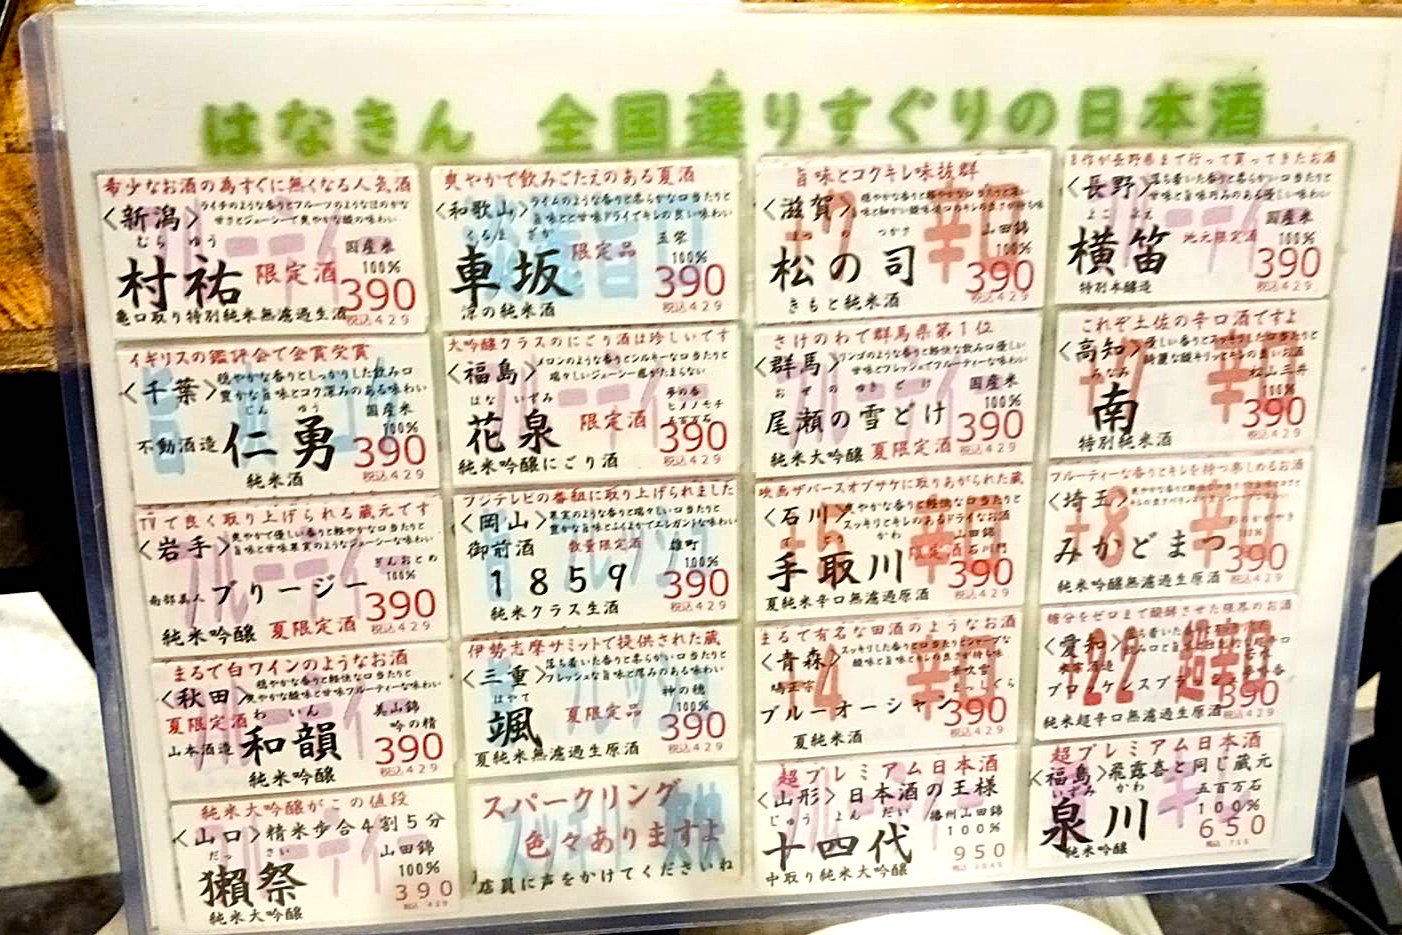 はなきん 全国選りすぐりの日本酒
希少なお酒の為すぐに無くなる人気酒
〈新潟〉ライチのような香りとフルーツのようなほのかな
甘さとジューシーで爽やかな酸の味わい
むら ゆう
国産米
100%
村祐 限定酒 390
亀口取り特別純米無濾過生酒 税込429
イギリスの鑑評会で金賞受賞
〈千葉〉穏やかな香りとしっかりした飲み口
豊かな旨味とコク深みのある味わい
じん ゆう
国産米
100%
不動酒造 仁勇 390
純米酒 税込429
TVで良く取り上げられる蔵元です
〈岩手〉爽やかで優しい香りと軽やかな口当たりと
旨味と甘味果実のようなジューシーな味わい
ぎんおとめ
100%
南部美人 ブリージー 390
純米吟醸 夏限定酒 税込429
まるで白ワインのようなお酒
〈秋田〉穏やかな香りと軽快な口当たりと
爽やかな酸味と甘味フルーティーな味わい
夏限定酒 わ いん
美山錦
吟の精
山本酒造 和韻 390
純米吟醸 税込429
純米大吟醸がこの値段
〈山口〉精米歩合4割5分
だっ さい
山田錦
100%
獺祭 390
純米大吟醸 税込429
爽やかで飲みごたえのある夏酒
〈和歌山〉ライムのような香りと柔らかな口当たりと
旨味とと甘味ドライでキレの良い味わい
くるま ざか
玉栄
100%
車坂 限定品 390
涼の純米酒 税込429
大吟醸クラスのにごり酒は珍しいです
〈福島〉メロンのような香りとシルキーな口当たりと
瑞々しいジューシー感がたまらない
はな いずみ
夢の香
ヒメノモチ
五百万石
花泉 限定酒 390
純米吟醸にごり酒 税込429
フジテレビの番組に取り上げられました
〈岡山〉果実のような香りと瑞々しい口当たりと
豊かな旨味とふくよかでエレガントな味わい
御前酒 数量限定酒 雄町
100%
1859 390
純米クラス生酒 税込429
伊勢志摩サミットで提供された蔵
〈三重〉落ち着いた香りと柔らかい口当たりと
フレッシュな旨味と厚みのある味わい
はやて
神の穂
100%
颯 夏限定品 390
夏純米無濾過生原酒 税込429
スパークリング
色々ありますよ
店員に声をかけてくださいね
旨味とコクキレ味抜群
〈滋賀〉
まつ の つかさ
山田錦
100%
松の司 390
きもと純米酒 税込429
さけのわで群馬県第1位
〈群馬〉リンゴのような香りと軽快な飲み口優しい
甘味とフレッシュでフルーティーな味わい
おぜ の ゆき どけ
国産米
100%
尾瀬の雪どけ 390
純米大吟醸 夏限定酒 税込429
映画ザバースオブサケに取りあがられた蔵
〈石川〉爽やかな香りと軽快な口当たりと
スッキリとキレのあるドライなお酒
て どり がわ
山田錦
限定酒 石川門
100%
手取川 390
夏純米辛口無濾過原酒 税込429
まるで有名な田酒のようなお酒
〈青森〉スッキリした香りと口当たりとシャープな
酸味と旨味とキレの良さが持ち味
鳩正宗
華吹雪
まっしぐら
ブルーオーシャン 390
夏純米酒 税込429
超プレミアム日本酒
〈山形〉日本酒の王様
じゅう よん だい
播州山田錦
100%
十四代 950
中取り純米大吟醸
目作が長野県まで行って買ってきたお酒
〈長野〉落ち着いた香りと柔らかい口当たりと
甘味と旨味巧みのある優しい味わい
よこ ぶえ
国産米
横笛 地元限定酒 100%
390
特別本醸造 税込429
これぞ土佐の辛口酒ですよ
〈高知〉優しい香りとスッキリした口当たりと
綺麗な酸キリッとキレの良いお酒
みなみ
松山三井
100%
南 390
特別純米酒 税込429
フルーティーな香りとキレを持つ楽しめるお酒
〈埼玉〉
みかどまつ 390
純米吟醸無濾過生原酒 税込429
糖分をゼロまで醗酵させた限界のお酒
〈愛知〉
390
純米超辛口無濾過生原酒 税込429
超プレミアム日本酒
〈福島〉飛露喜と同じ蔵元
いずみ かわ
五百万石
100%
泉川 650
純米吟醸